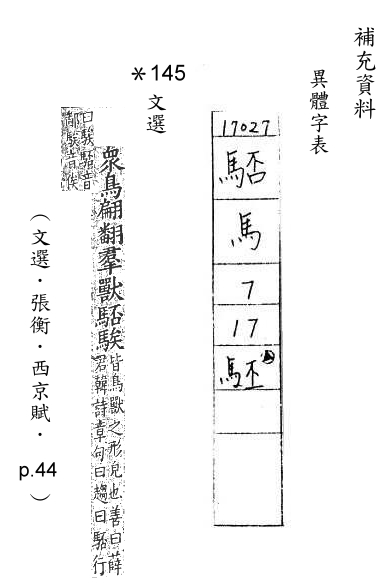 補充資料
異體字表
17027
馬
7
17
駓
*145
文選
衆鳥翩翻羣獸騃
皆鳥獸之形皃也善曰薛
君韓詩章句曰趨曰行
曰騃音
鄙騃音俟
(文選·張衡·西京賦·p.44)